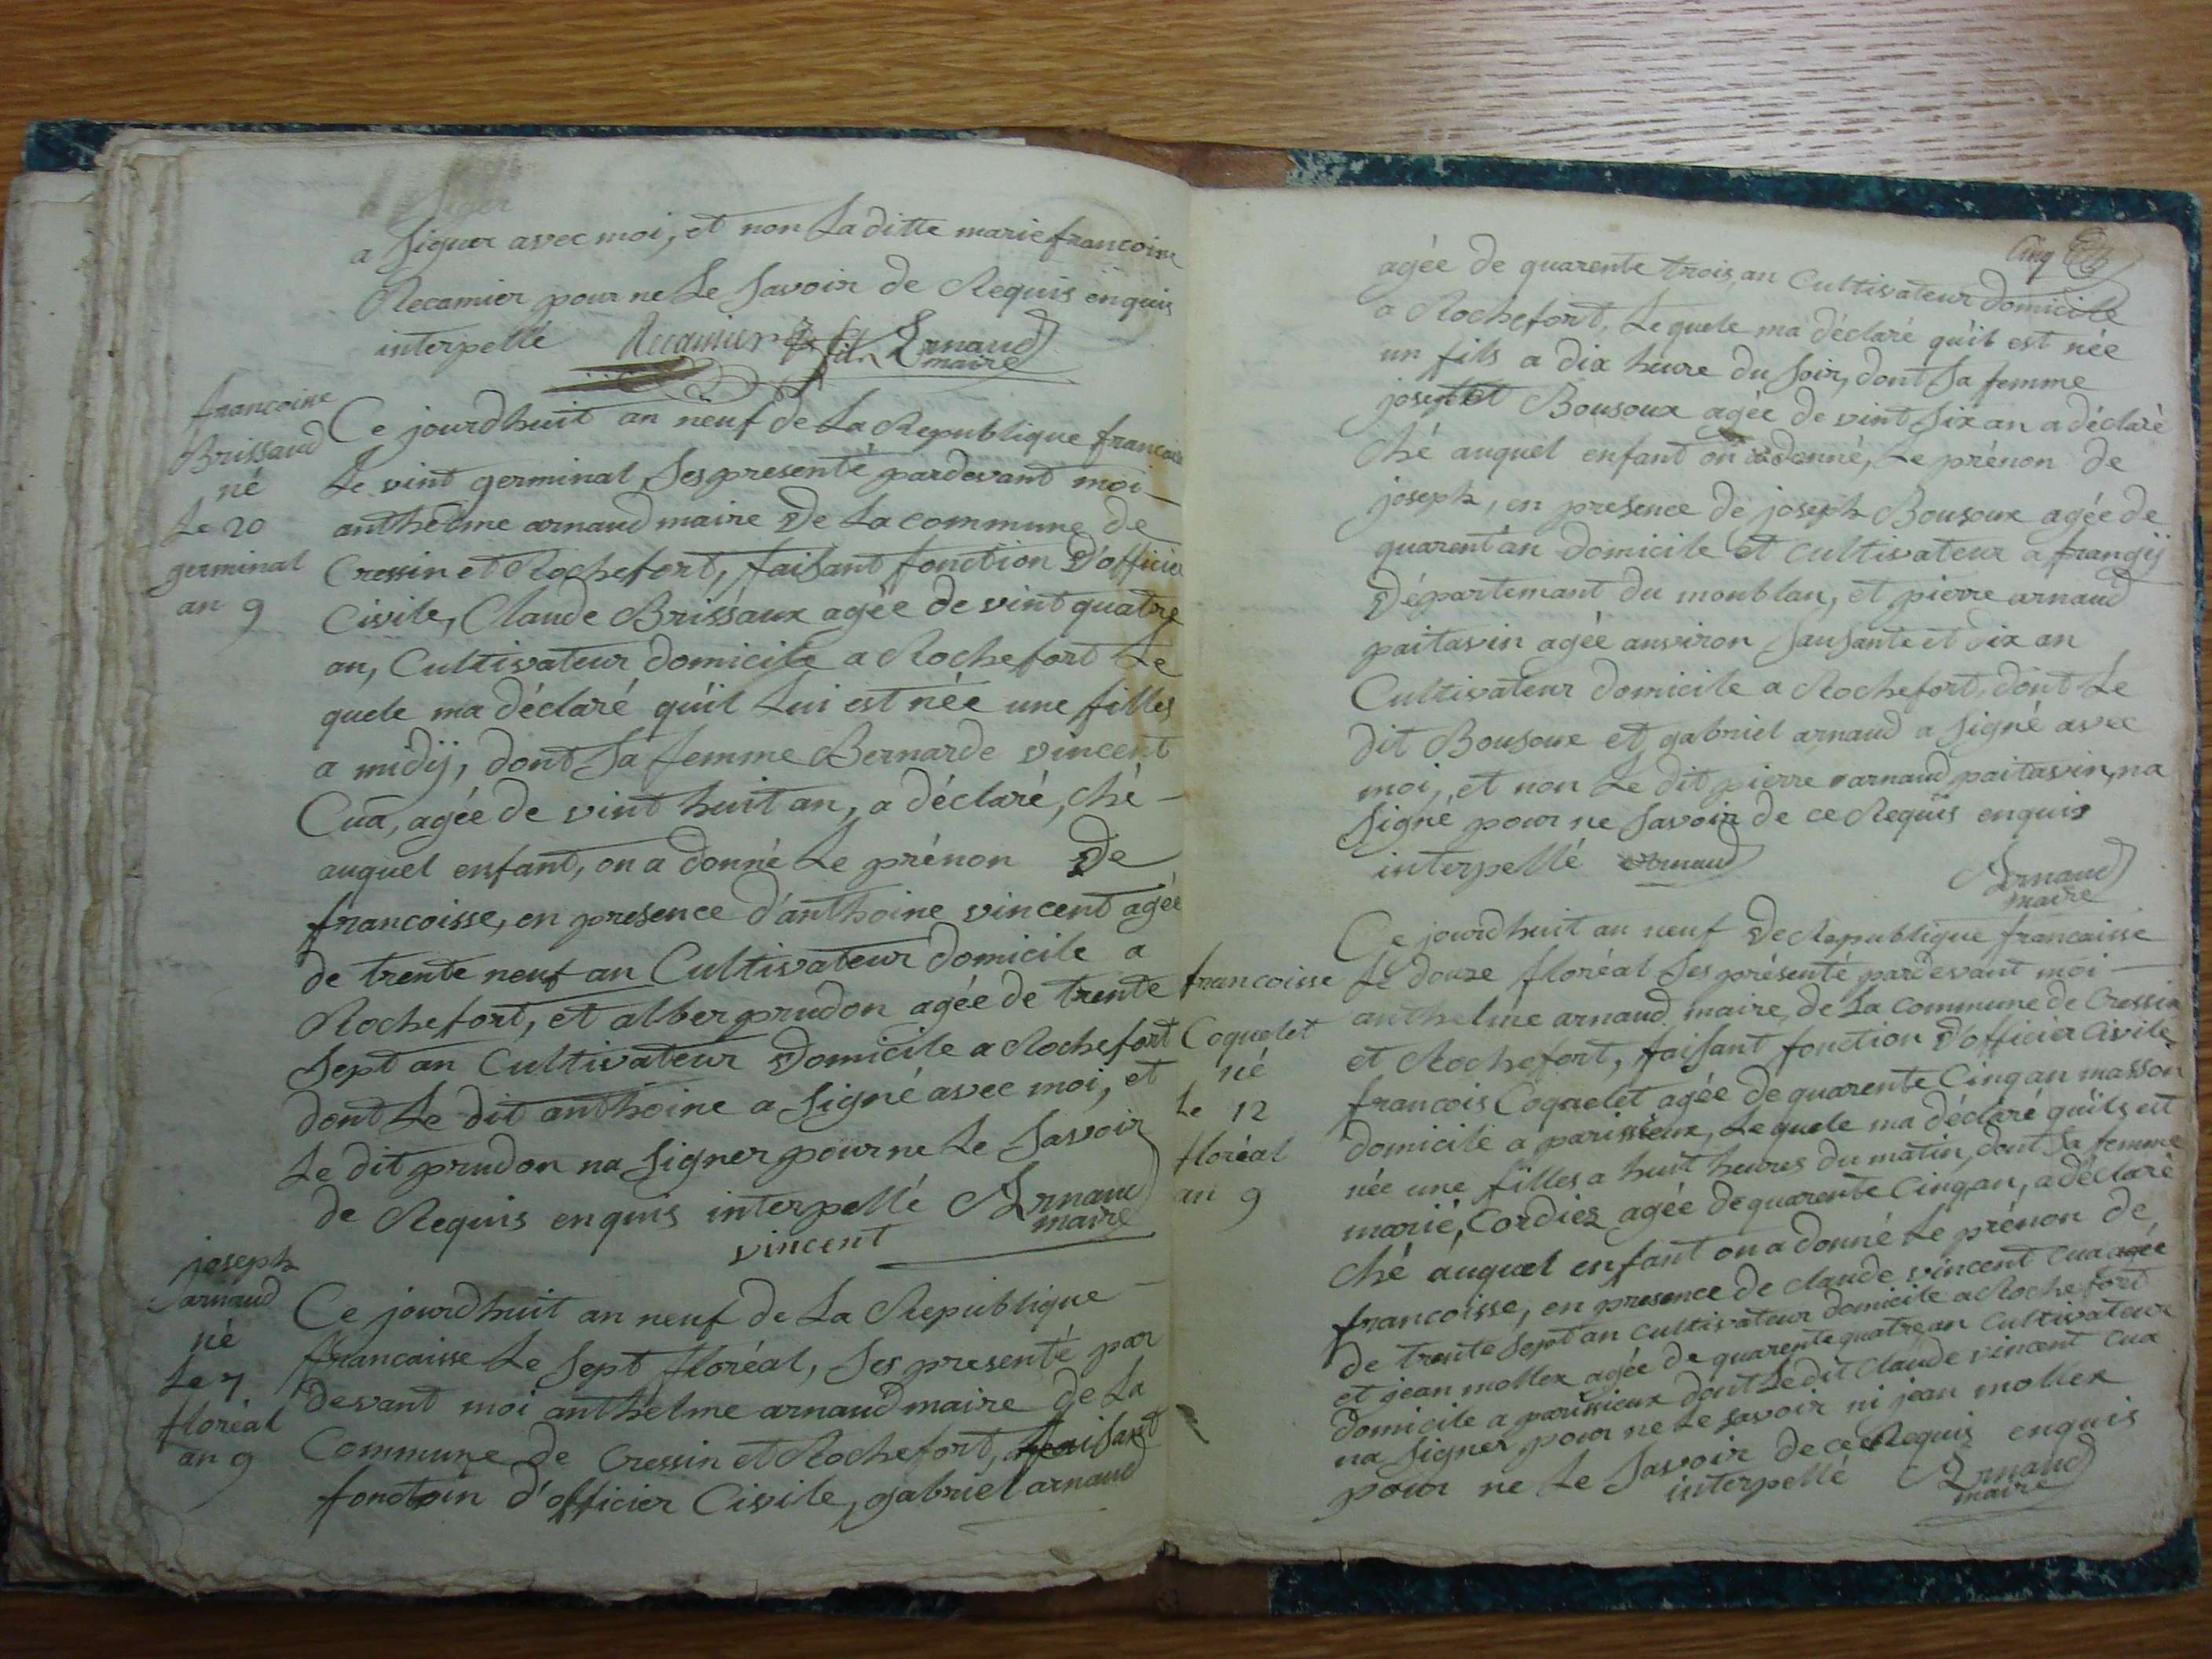 a Signer avec moi, et non La ditte marie francoise
Recamier pour ne Le Savoir de Requis enquis
interpellé Recamier fils Arnaud
maire
francoise
Brissaud
né
Le 20
germinal
an 9
Ce jourdhuit an neuf de La Republique francaise
Le vint germinal Ses presenté pardevant moi
anthelme arnaud maire De La commune de
Cressin et Rochefort, faisant fonction D'officier
Civile, Claude Brissaux agée de vint quatre
an, Cultivateur domicile a Rochefort Le
quele ma déclaré qu'il Lui est née une filles
a midij, dont Sa femme Bernarde vincent
Cua, agée de vint huit an, a déclaré, ché
auquel enfant, on a donné Le prénon De
francoisse, en presence d'anthoine vincent agée
de trente neuf an Cultivateur domicile a
Rochefort, et alber prudon agée de trente
Sept an Cultivateur Domicile a Rochefort
dont Le dit anthoine a Signé avec moi, et
Le dit prudon na Signer pour ne Le Savoir
de Requis enquis interpellé Arnaud
maire
vincent
joseph
arnaud
né
Le 7
floréal
an 9
Ce jourdhuit an neuf de La Republique
francaisse Le Sept floréal, Ses presenté par
devant moi anthelme arnaud maire de La
Commune de Cressin et Rochefort, faisant
fonctoin d'officier Civile, gabriel arnaud
Cinq
agée de quarente trois an Cultivateur domicile
a Rochefort, Le quele ma déclaré qu'il est née
un fils a dix heure du Soir, dont Sa femme
josephet Bousoux agée de vint Six an a déclaré
ché auquel enfant on a donné, Le prénon de
joseph, en presence de joseph Bousoux agée de
quarent'an domicile et Cultivateur a frangij
Département du monblan, et pierre arnaud
paitavin agée anviron Sausante et dix an
Cultivateur domicile a Rochefort, dont Le
dit Bousoux et gabriel arnaud a Signé avec
moi, et non Le dit pierre arnaud paitavin, na
Signé pour ne Savoir de ce Requis enquis
interpellé Arnaud
Arnaud
maire
francoisse
Coquelet
né
Le 12
floréal
an 9
Ce jourdhuit an neuf De Republique francaisse
Le douze floréal Ses présenté pardevant moi
anthelme arnaud maire, de La commune de Cressin
et Rochefort, faisant fonction D'officier Civile
francois Coquelet agée de quarente Cinq an masson
domicile a parissieux, Le quele ma déclaré qu'ils est
née une filles a huit heures du matin, dont Sa femme
marié, Cordiez agée de quarente Cinq an, a déclaré
ché auquel enfant on a donné Le prénon de
francoisse, en presence de claude vincent cua agée
de trente Sept an cultivateur domicile a Rochefort
et jean mollex agée de quarente quatre an Cultivateur
domicile a parissieux dont Le dit Claude vincent cua
na Signer pour ne Le savoir ni jean mollex
pour ne Le Savoir de ce Requis enquis
interpellé Arnaud
maire